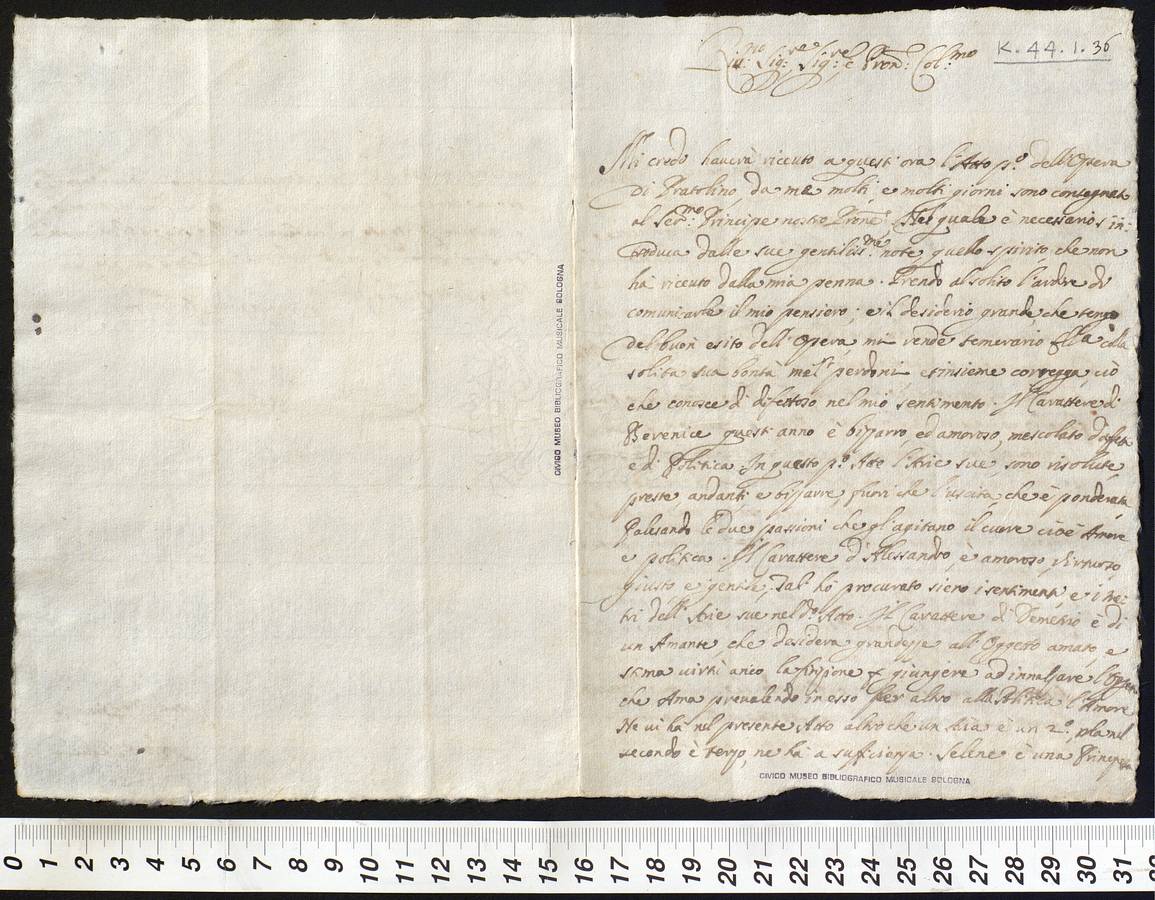 K. 44. 1. 36
Ill:mo Sig:re Sig:re e Pron: Col:mo
Mi credo haverà riceuto a quest'ora l'Atto p.o dell'Opera
di Pratolino, da me molti, e molti giorni sono consegnato
al Ser:mo Principe nostro Prone: Nel quale è necessario s'in:
troduca dalle sue gentiliss:me note quello spirito, che non
ha riceuto dalla mia penna. Prendo al solito l'ardire di
comunicarle il mio pensiero; e il desiderio grande, che tengo
del buon esito dell'Opera, mi rende temerario colla
solita sua bontà mi perdoni, et insieme corregga, ciò
che conosce di difettoso nel mio sentimento. Il Carattere di
Berenice quest'anno è bizzarro, ed amoroso, mescolato d'affetti
e di Politica. In questo p.o Atto l'Arie sue, sono risolute,
preste, andanti e bizzarre, fuori che l'uscita, che è ponderata,
Palesando le due passioni che gl'agitano il cuore cioè Amore
e politica. Il Carattere d'Alessandro, è amoroso, virtuoso,
giusto e gentile. Tali ho procurato sieno i sentimenti, e i me:
tri dell'Arie sue nel d.o Atto. Il Carattere di Demetrio è di
un Amante, che desidera grandezze all'Oggetto amato, e
stima virtù anco la finzione p giungere ad innalzare l'Oggetto
che Ama prevalendo in esso per altro alla Politica l'Amore
Ne vi ha nel presente Atto altro che un Aria è un 2.o, ma nel
secondo è terzo, ne ha a sufficienza. Selene è una Principessa
CIVICO MUSEO BIBLIOGRAFICO MUSICALE BOLOGNA
CIVICO MUSEO BIBLIOGRAFICO MUSICALE BOLOGNA
0 1 2 3 4 5 6 7 8 9 10 11 12 13 14 15 16 17 18 19 20 21 22 23 24 25 26 27 28 29 30 31